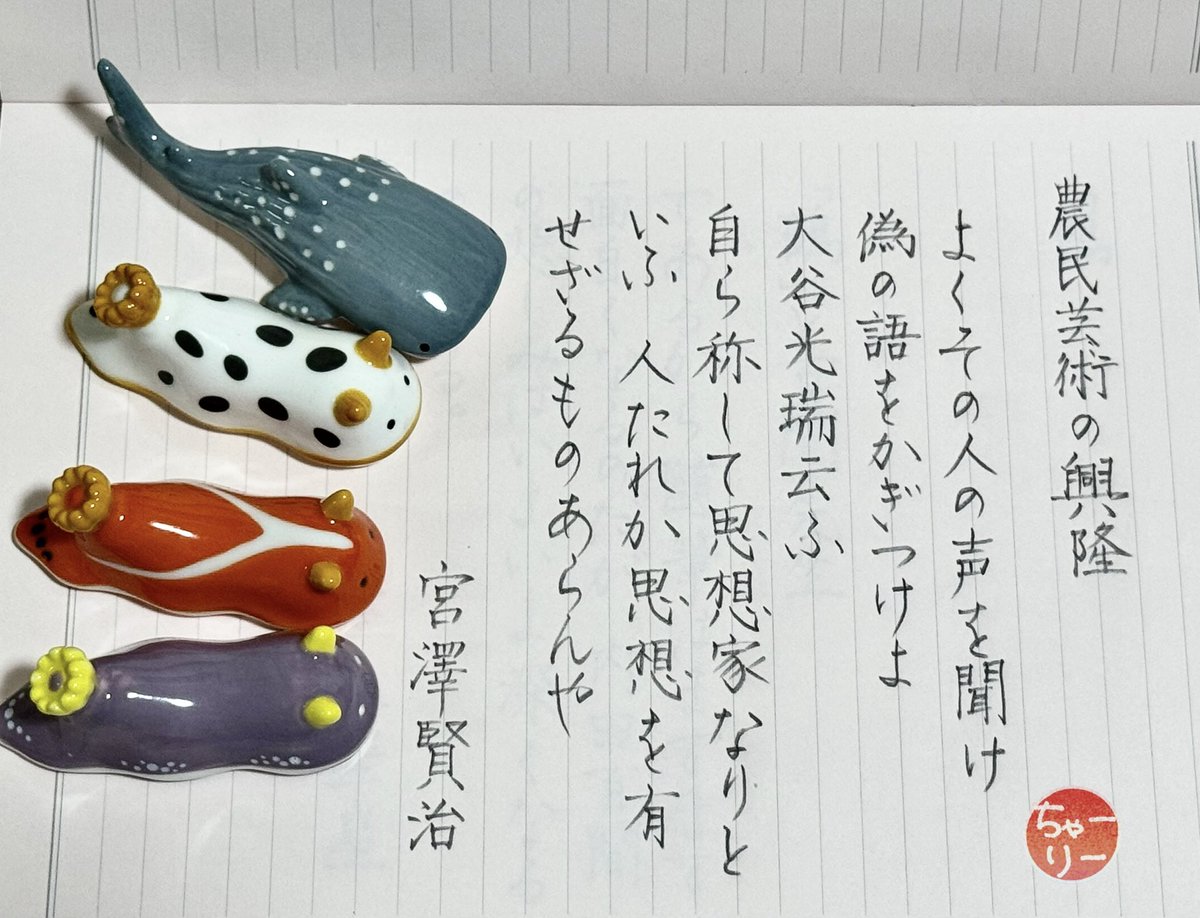 農民芸術の興隆
よくその人の声を聞け
偽の語をかぎつけよ
大谷光瑞云ふ
自ら称して思想家なりと
いふ 人たれか思想を有
せざるものあらんや
宮澤賢治
ちゃーりー